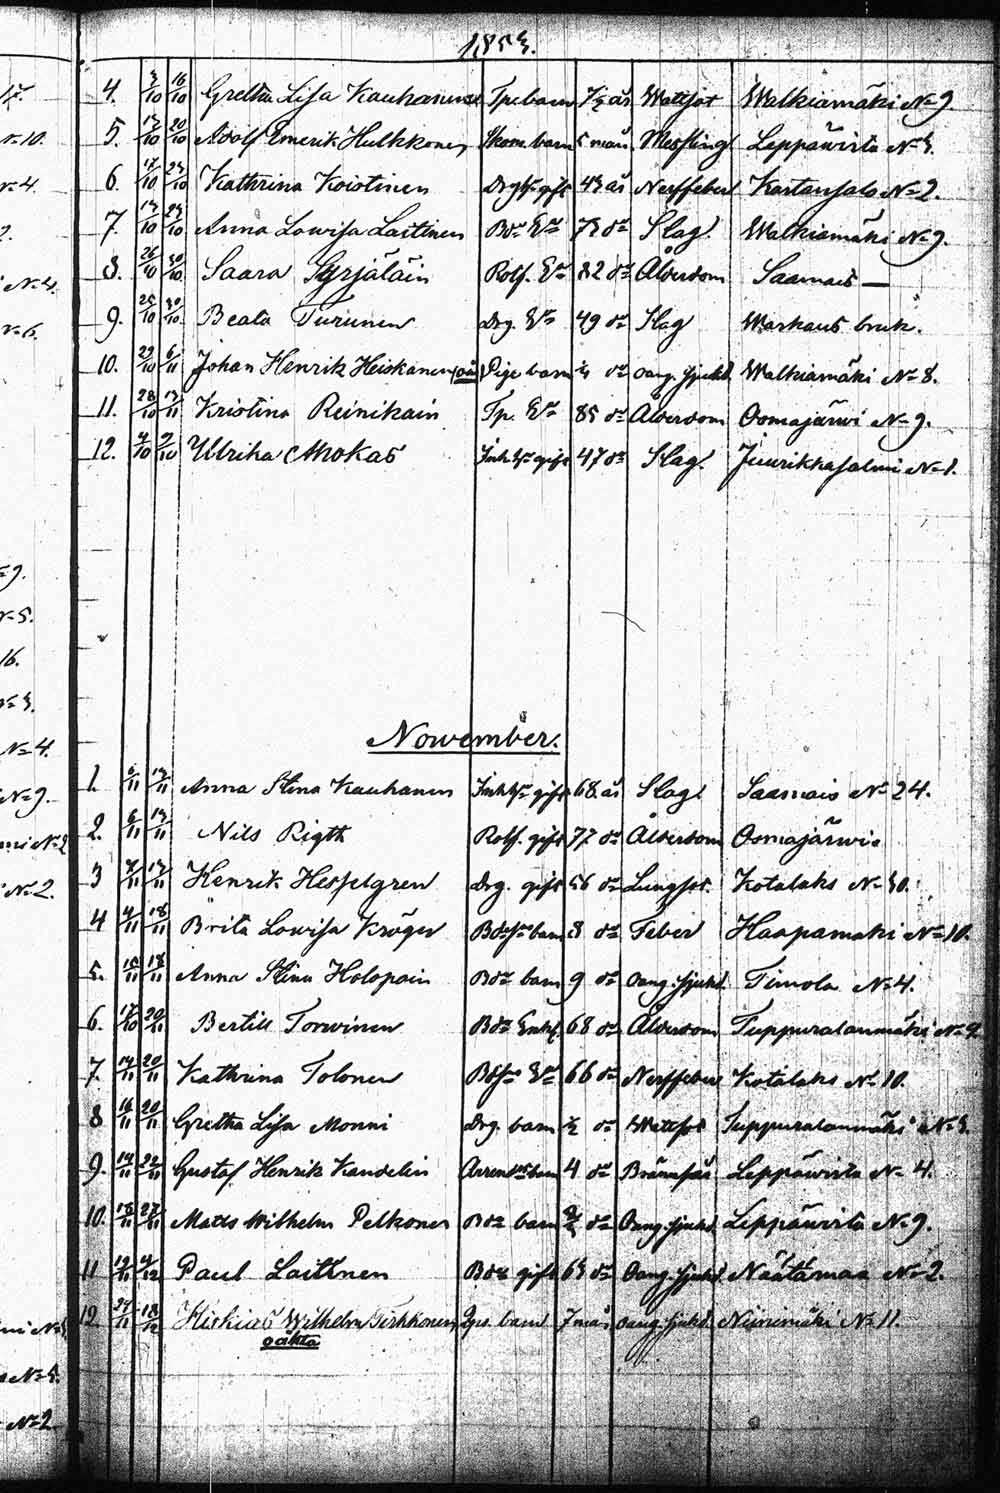 1853.
4. 3/10 16/10 Gretha Lisa Kauhanen Tp. barn 7½ år Wattsot Walkiamäki N=9.
5. 13/10 20/10 Adolf Emerik Hulkkonen barn 5 mån. Messling Leppäwirta N=3.
6. 17/10 23/10 Kathrina Koistinen gift 43 år Nerffeber Kartansalo N=2.
7. 13/10 23/10 Anna Lowisa Laitinen Bde E= 73 d= Slag. Walkiamäki N=9.
8. 26/10 30/10 Saara Syrjäläin Rotf. E= 82 d= Ålderdom Saamais —
9. 25/10 30/10 Beata Turunen Drg. E= 49 d= Slag Warkaus bruk.
10. 29/10 6/11 Johan Henrik Heiskanen (oä) Pige barn ¼ d= oang. sjukd. Walkiamäki N=8.
11. 28/10 13/11 Kristina Reinikain Tp. E= 85 d= Ålderdom Oomajärwi N=9.
12. 4/10 9/10 Ulrika Mokas Inh. gift 47 d= Slag. Juurikkasalmi N=1.
November.
1. 6/11 13/11 Anna Stina Kauhanen Inh. gift 68 år Slag Saamais N= 24.
2. 6/11 13/11 Nils Rigth Rotf. gift 77 d= Ålderdom Oomajärwi.
3 8/11 13/11 Henrik Hesselgren Drg. gift 56 d= Lungsot. Kotalaks N=10.
4 4/11 18/11 Brita Lowisa Kröger barn 8 d= Feber Haapamäki N=10.
5. 15/11 18/11 Anna Stina Holopain Bde barn 9 d= oang. sjukd. Timola N=4.
6. 17/10 20/11 Bertill Torwinen Bde Enkl. 68 d= Ålderdom Tuppuralanmäki N=9.
7. 14/11 20/11 Kathrina Tolonen E= 66 d= Nerffeber Kotalaks N= 10.
8 16/11 20/11 Gretha Lisa Monni Drg. barn ½ d= Wattsot Tuppuralanmäki N=3.
9. 14/11 22/11 Gustaf Henrik Kandelin barn 4 d= Brännsår Leppäwirta N= 4.
10. 18/11 27/11 Matts Wilhelm Pelkonen Bde barn ¾ d= Oang. sjukd. Leppäwirta N=9.
11 19/11 4/12 Paul Laitinen Bde gift 63 d= Oang. sjukd. Näätämaa N=2.
12. 27/11 18/12 Hiskias Wilhelm Tirkkonen barn 7 mån. oang. sjukd. Niinimäki N= 11.
oäkta